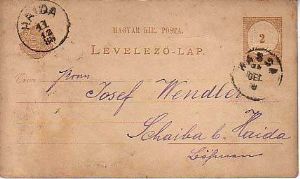 MAGYAR KIR. POSTA.
LEVELEZŐ-LAP.
2
HAIDA
11
12
KASSA
DEC.
Herrn
Josef Wendler
Schaiba b. Haida
Böhmen